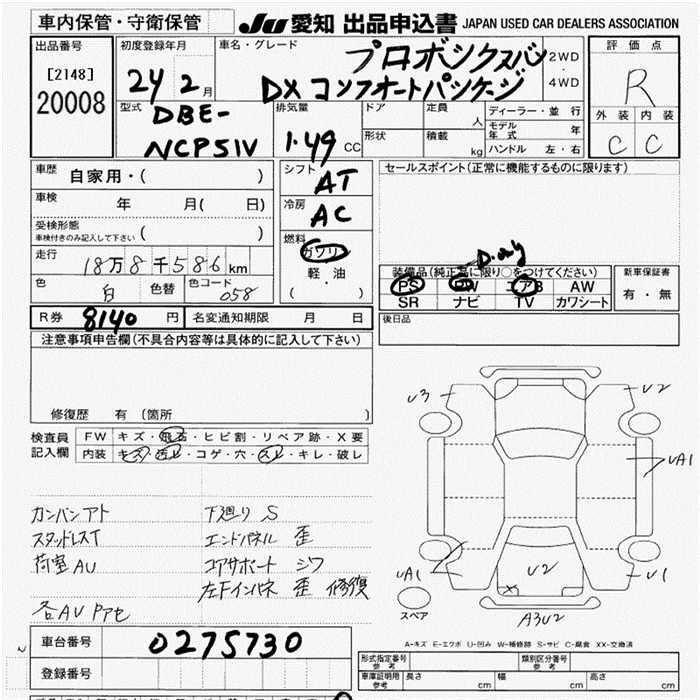 車内保管・守衛保管
JU 愛知 出品申込書 JAPAN USED CAR DEALERS ASSOCIATION
出品番号
[2148]
20008
初度登録年月
24 2月
車名・グレード
プロボックスバン
DX コンフォートパッケージ
2WD
・
4WD
評価点
R
外装 内装
C C
型式
DBE-
NCP51V
排気量
1.49 CC
ドア
形状
定員 人
積載 kg
ディーラー・並行
モデル年式 年
ハンドル 左・右
車歴 自家用・( )
車検 年 月( 日)
受検形態
車検付きのみ記入して下さい ( )
走行 18万8千586km
色 白 色替 色コード 058
シフト AT
冷房 AC
燃料
ガソリン
軽・油
( )
セールスポイント(正常に機能するものに限ります)
D.only
装備品(純正品に限り○をつけてください)
PS PW エアB AW
SR ナビ TV カワシート
新車保証書
有・無
R券 8140円 名変通知期限 月 日
後日品
注意事項申告欄(不具合内容等は具体的に記入して下さい)
修復歴 有 (箇所 )
検査員
記入欄
FW キズ・飛石・ヒビ割・リペア跡・X要
内装 キズ・汚レ・コゲ・穴・スレ・キレ・破レ
カンバンアト
スタッドレスT
荷室AU
各AU Pアセ
下廻り S
エンドパネル 歪
コアサポート シワ
左下インパネ 歪 修復
U3
U2
UA1
UA1
U2
U1
A3U2
スペア
A-キズ E-エクボ U-凹み W-補修跡 S-サビ C-腐食 XX-交換済
車台番号 0275730
登録番号
型式指定番号
参考
類別区分番号
参考
車庫証明用
参考
長さ cm 幅 cm 高さ cm